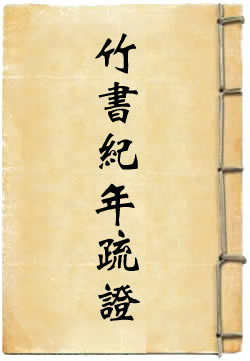 竹書紀年疏證